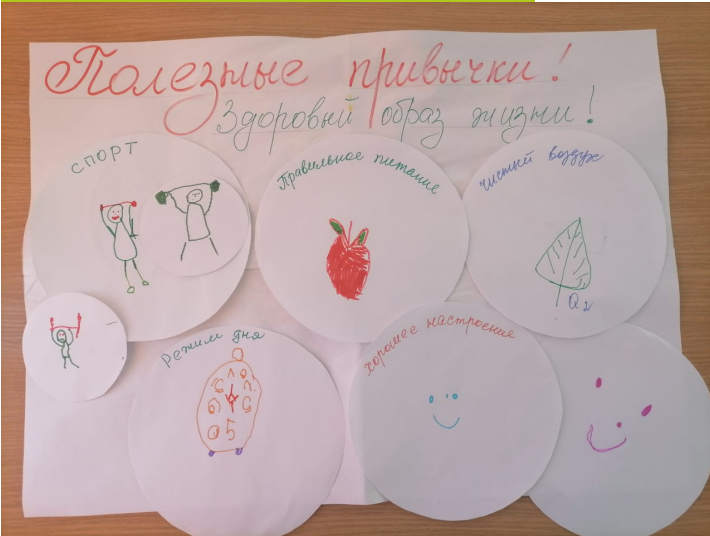 Полезные привычки!
Здоровый образ жизни!
спорт
Правильное питание
чистый воздух
O2
режим дня
хорошее настроение